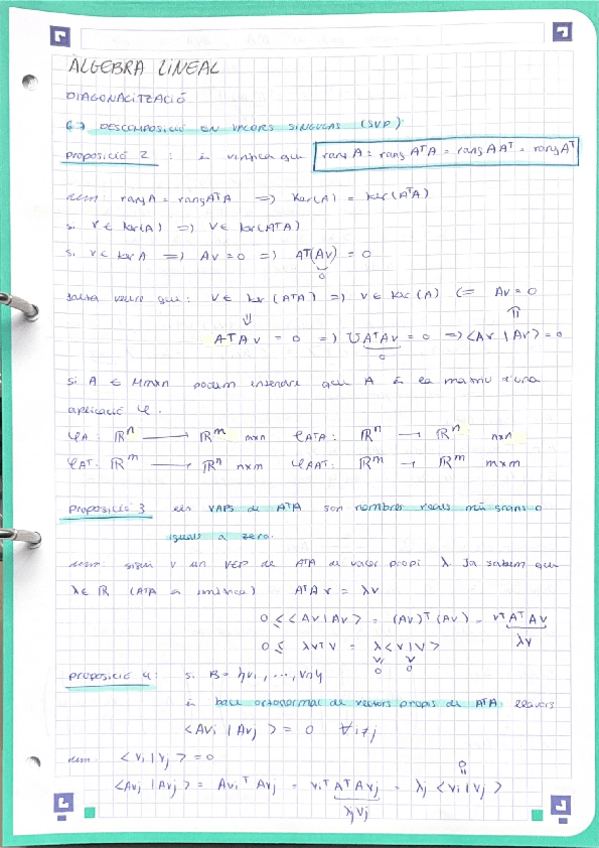 ÀLGEBRA LINEAL
DIAGONALITZACIÓ
6.7 DESCOMPOSICIÓ EN VALORS SINGULARS (SVD)
proposició 2 : es verifica que rang A = rang AᵀA = rang AAᵀ = rang Aᵀ
dem: rang A = rang AᵀA => Ker(A) = ker(AᵀA)
si v ∈ ker(A) => v ∈ ker(AᵀA)
si v ∈ ker A => Av = 0 => Aᵀ(Av) = 0
0
falta veure que: v ∈ ker (AᵀA) => v ∈ ker (A) <= Av = 0
⇓ ⇑
AᵀAv = 0 => vᵀAᵀAv = 0 => <Av | Av> = 0
0
si A ∈ Mmxn podem entendre que A és la matriu d'una
aplicació φ.
φA : ℝⁿ → ℝᵐ mxn φAᵀA : ℝⁿ → ℝⁿ nxn
φAᵀ : ℝᵐ → ℝⁿ nxm φAAᵀ : ℝᵐ → ℝᵐ mxm
proposició 3 els VAPS de AᵀA son nombres reals més grans o
iguals a zero.
dem sigui v un VEP de AᵀA de valor propi λ. Ja sabem que
λ ∈ ℝ (AᵀA és simètrica) AᵀAv = λv
0 ≤ <Av | Av> = (Av)ᵀ (Av) = vᵀAᵀAv
λv
0 ≤ λvᵀv = λ<v | v>
proposició 4: si B = {v₁, ..., vₙ}
és base ortonormal de vectors propis de AᵀA. llavors
<Avi | Avj> = 0 ∀i≠j
dem: <vi | vj> = 0
<Avi | Avj> = Aviᵀ Avj = viᵀ AᵀAvj = λj <vi | vj>
λjvj